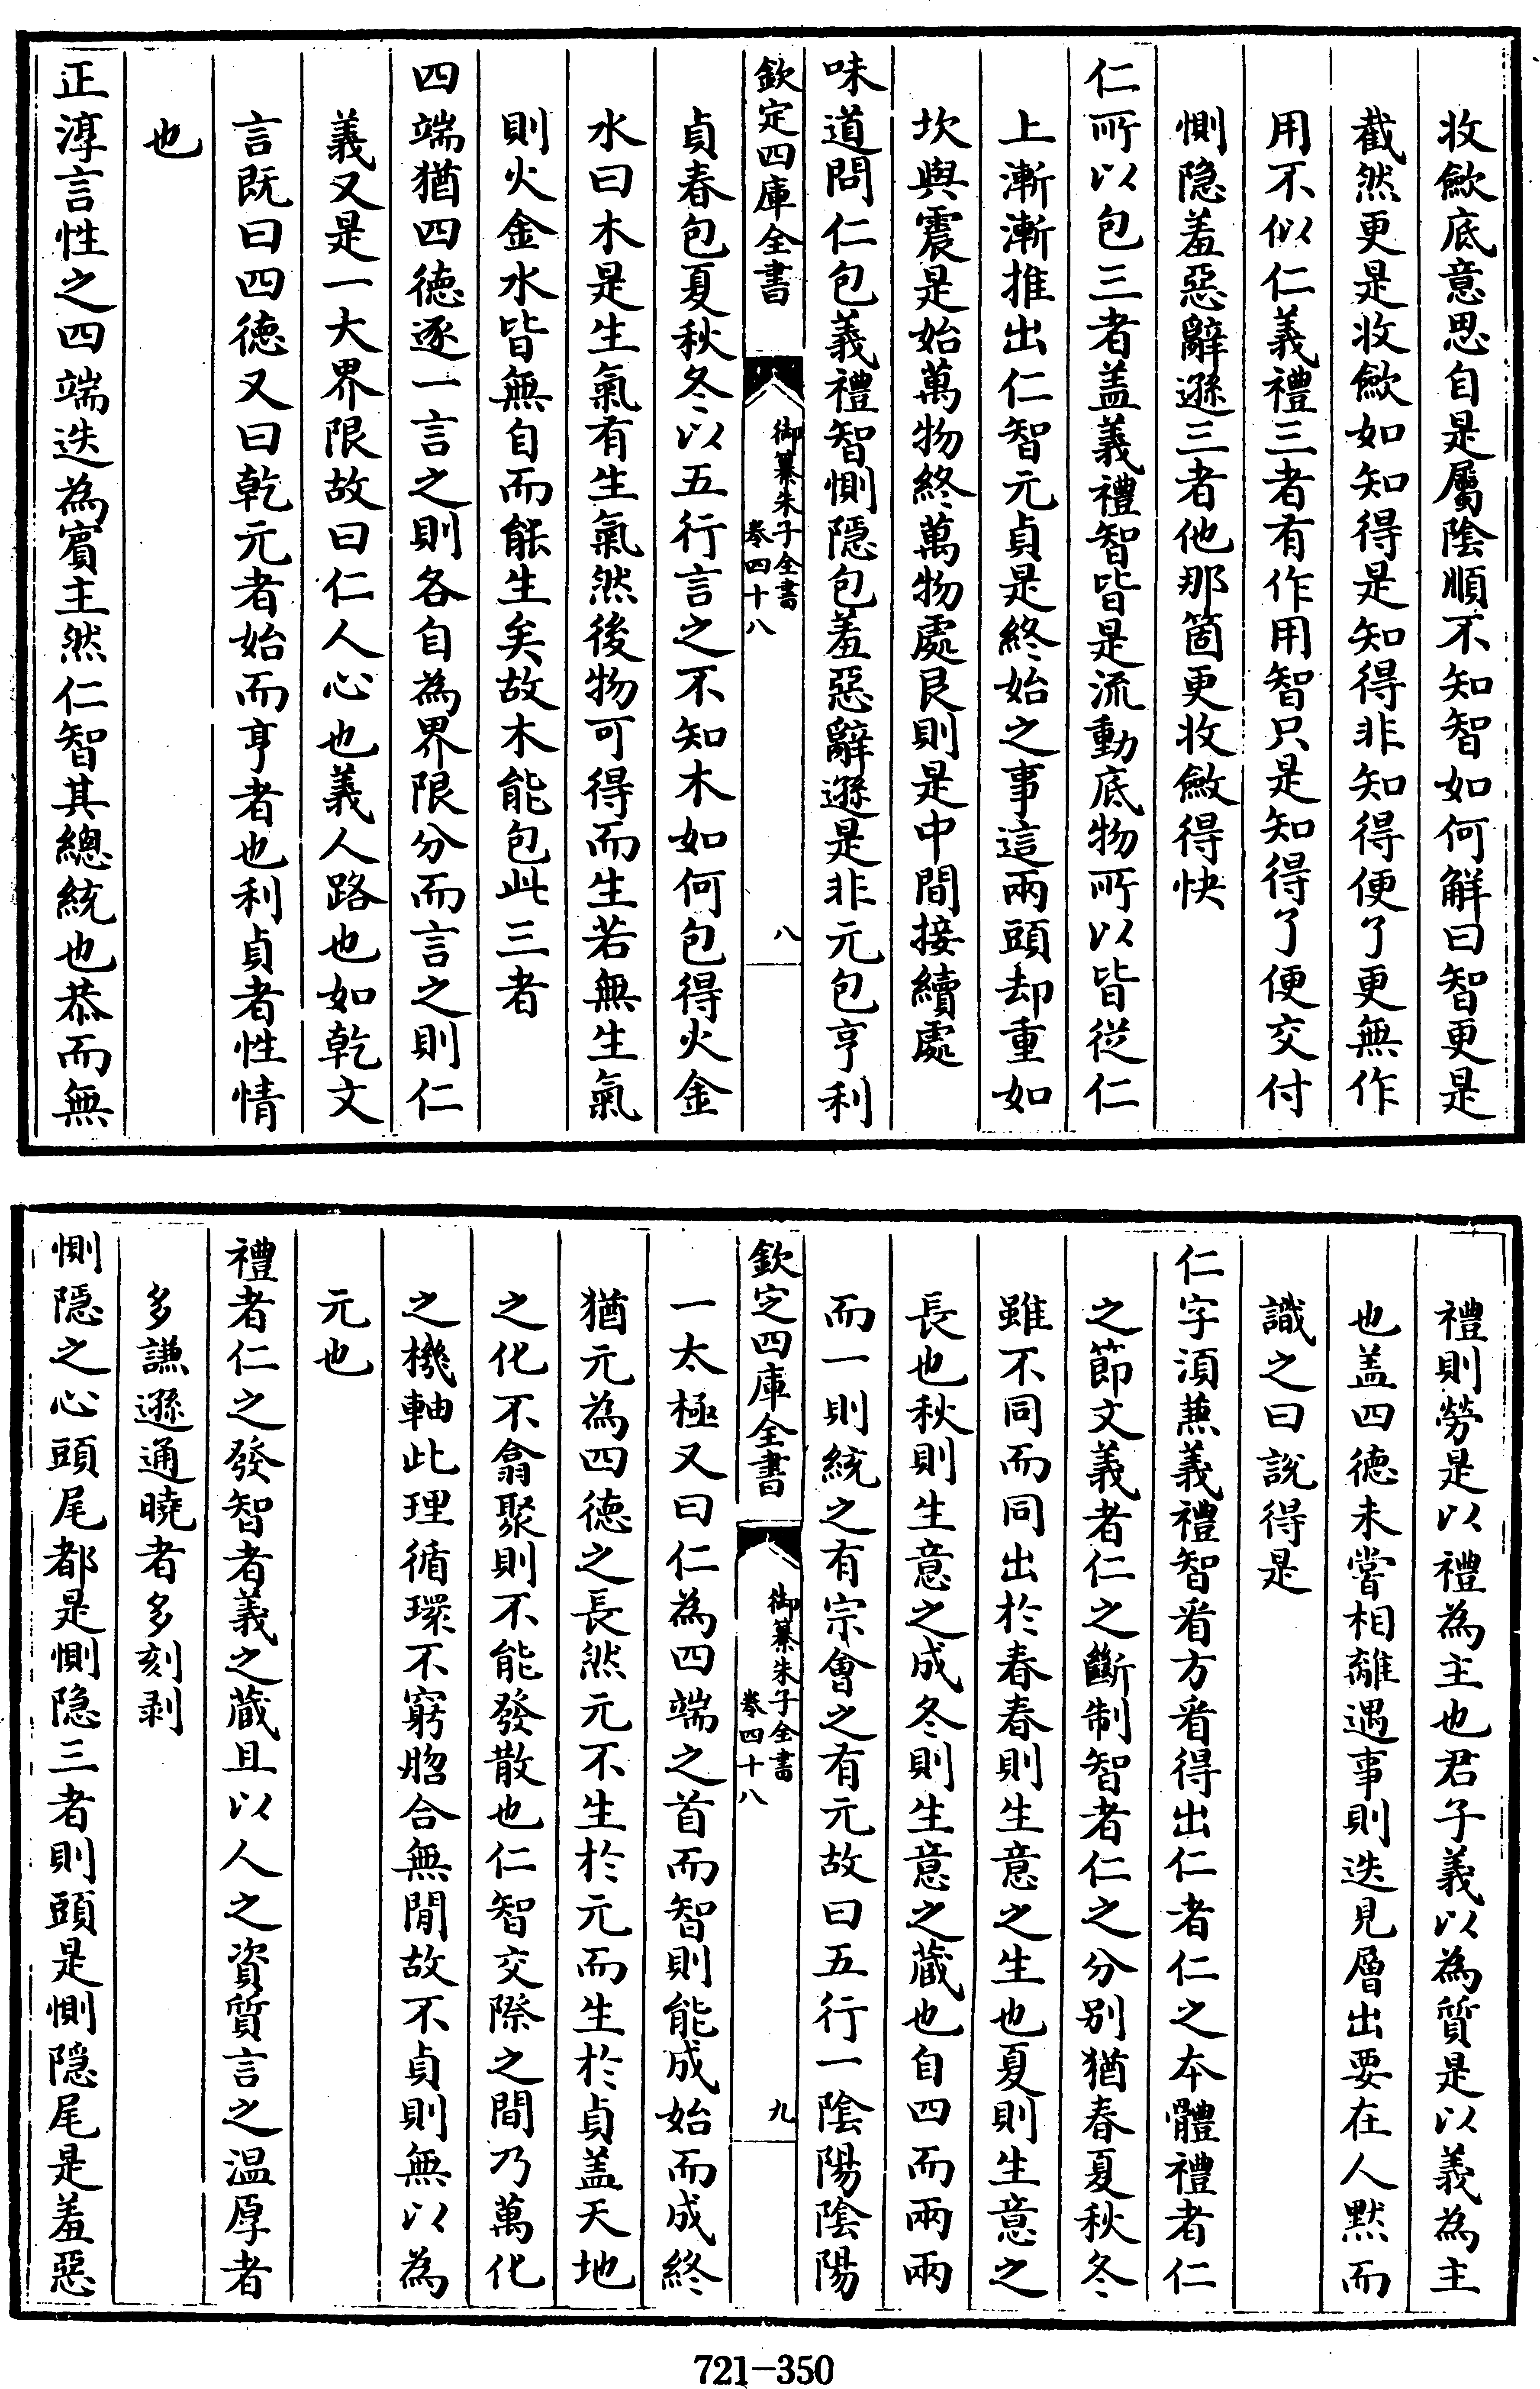 收歛底意思自是屬陰順不知智如何解曰智更是
截然更是收歛如知得是知得非知得便了更無作
用不似仁義禮三者有作用智只是知得了便交付
惻隐羞惡辭遜三者他那箇更收斂得快
仁所以包三者盖義禮智皆是流動底物所以皆從仁
上漸漸推出仁智元貞是終始之事這兩頭却重如
坎與震是始萬物終萬物處艮則是中間接續處
味道問仁包義禮智惻隠包羞惡辭遜是非元包亨利
欽定四庫全書
御纂朱子全書
卷四十八
八
貞春包夏秋冬以五行言之不知木如何包得火金
水曰木是生氣有生氣然後物可得而生若無生氣
則火金水皆無自而能生矣故木能包此三者
四端猶四徳逐一言之則各自為界限分而言之則仁
義又是一大界限故曰仁人心也義人路也如乾文
言既曰四徳又曰乾元者始而亨者也利貞者性情
也
正淳言性之四端迭為賓主然仁智其總統也恭而無
禮則勞是以禮為主也君子義以為質是以義為主
也盖四徳未嘗相離遇事則迭見層出要在人黙而
識之曰說得是
仁字湏蕉義禮智看方看得出仁者仁之本體禮者仁
之節文義者仁之斷制智者仁之分别猶春夏秋冬
雖不同而同出於春春則生意之生也夏則生意之
長也秋則生意之成冬則生意之蔵也自四而兩兩
而一則統之有宗會之有元故曰五行一陰陽陰陽
欽定四庫全書
御纂朱子全書
卷四十八
九
一太極又曰仁為四端之首而智則能成始而成終
猶元為四徳之長然元不生於元而生於貞盖天地
之化不翕聚則不能發散也仁智交際之間乃萬化
之機軸此理循環不窮脗合無間故不貞則無以為
元也
禮者仁之發智者義之蔵且以人之資質言之温厚者
多謙遜通曉者多刻剥
惻隠之心頭尾都是惻隐三者則頭是惻隠尾是羞惡
721-350